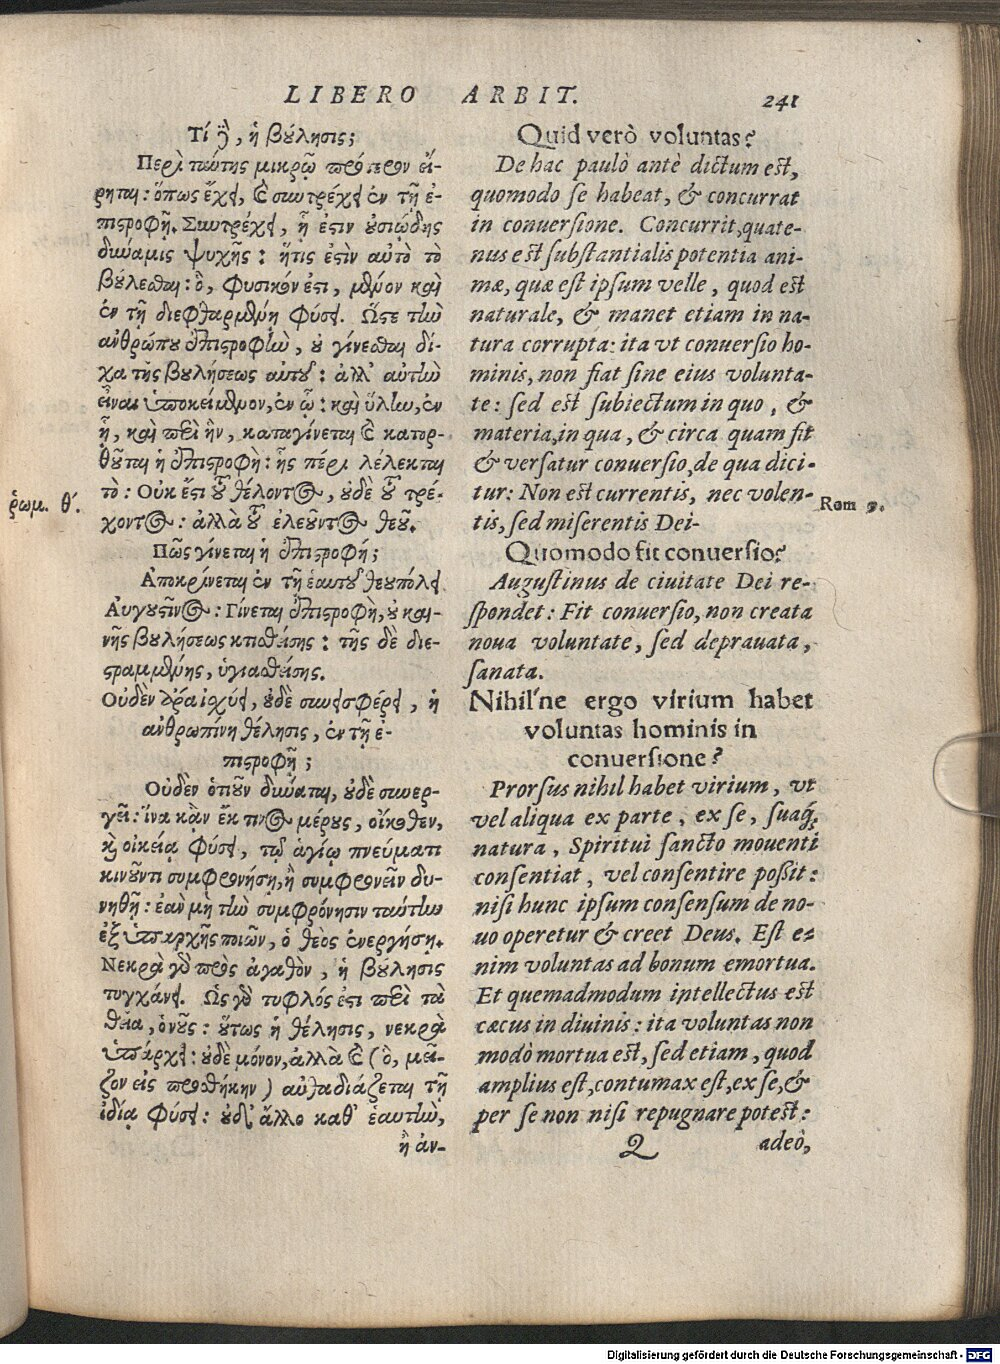 LIBERO ARBIT. 241
Τί δὲ, ἡ βύλησις;
Περὶ ταύτης μικρῷ πρότερον εἴ-
ρηται: ὅπως ἔχει, καὶ συντρέχει ἐν τῇ ἐ-
πιστροφῇ. Συντρέχει, ᾗ ἐστιν οὐσιώδης
δύναμις ψυχῆς: ἥτις ἐστὶν αὐτὸ τὸ
βούλεσθαι: ὃ, φυσικόν ἐστι, μένον καὶ
ἐν τῇ διεφθαρμένῃ φύσει. Ὥστε τὴν
ἀνθρώπου ἐπιστροφὴν, οὐ γίνεσθαι δί-
χα τῆς βουλήσεως αὐτοῦ: ἀλλ' αὐτὴν
εἶναι ὑποκείμενον, ἐν ᾧ: καὶ ὕλην, ἐν
ᾗ, καὶ περὶ ἣν, καταγίνεται καὶ κατορ-
θοῦται ἡ ἐπιστροφή: ἧς πέρι λέλεκται
τὸ: Οὐκ ἔστι τοῦ θέλοντος, οὐδὲ τοῦ τρέ-
χοντος: ἀλλὰ τοῦ ἐλεοῦντος θεοῦ.
ῥωμ. θ΄.
Πῶς γίνεται ἡ ἐπιστροφή;
Ἀποκρίνεται ἐν τῇ ἑαυτοῦ θεουπόλει
Αὐγουστῖνος: Γίνεται ἐπιστροφὴ, οὐ και-
νῆς βουλήσεως κτισθείσης: τῆς δὲ διε-
στραμμένης, ὑγιασθείσης.
Οὐδὲν ἄρα ἰσχύει, οὐδὲ συνεισφέρει, ἡ
ἀνθρωπίνη θέλησις, ἐν τῇ ἐ-
πιστροφῇ;
Οὐδὲν ὁτιοῦν δύναται, οὐδὲ συνερ-
γεῖ: ἵνα κἂν ἔκ τινος μέρους, οἴκοθεν,
καὶ οἰκείᾳ φύσει, τῷ ἁγίῳ πνεύματι
κινοῦντι συμφρονήσῃ, ἢ συμφρονεῖν δυ-
νηθῇ: ἐὰν μὴ τὴν συμφρόνησιν ταύτην
ἐξ ὑπαρχῆς ποιῶν, ὁ θεὸς ἐνεργήσῃ.
Νεκρὰ γὰρ πρὸς ἀγαθὸν, ἡ βούλησις
τυγχάνει. Ὡς γὰρ τυφλός ἐστι περὶ τὰ
θεῖα, ὁ νοῦς: οὕτως ἡ θέλησις, νεκρὰ
ὑπάρχει: οὐδὲ μόνον, ἀλλὰ καὶ (ὃ, μεῖ-
ζον εἰς προσθήκην) αὐθαδιάζεται τῇ
ἰδίᾳ φύσει: οὐδ' ἄλλο καθ' ἑαυτὴν,
ἢ ἀν-
Quid verò voluntas?
De hac paulò antè dictum est,
quomodo se habeat, & concurrat
in conuersione. Concurrit, quate-
nus est substantialis potentia ani-
mæ, quæ est ipsum velle, quod est
naturale, & manet etiam in na-
tura corrupta: ita vt conuersio ho-
minis, non fiat sine eius volunta-
te: sed est subiectum in quo, &
materia, in qua, & circa quam fit
& versatur conuersio, de qua dici-
tur: Non est currentis, nec volen-
tis, sed miserentis Dei-
Rom 9.
Quomodo fit conuersio?
Augustinus de ciuitate Dei re-
spondet: Fit conuersio, non creata
noua voluntate, sed deprauata,
sanata.
Nihil'ne ergo virium habet
voluntas hominis in
conuersione?
Prorsus nihil habet virium, vt
vel aliqua ex parte, ex se, suaq́;
natura, Spiritui sancto mouenti
consentiat, vel consentire possit:
nisi hunc ipsum consensum de no-
uo operetur & creet Deus. Est e-
nim voluntas ad bonum emortua.
Et quemadmodum intellectus est
cæcus in diuinis: ita voluntas non
modò mortua est, sed etiam, quod
amplius est, contumax est, ex se, &
per se non nisi repugnare potest:
Q adeò,
Digitalisierung gefördert durch die Deutsche Forschungsgemeinschaft - DFG